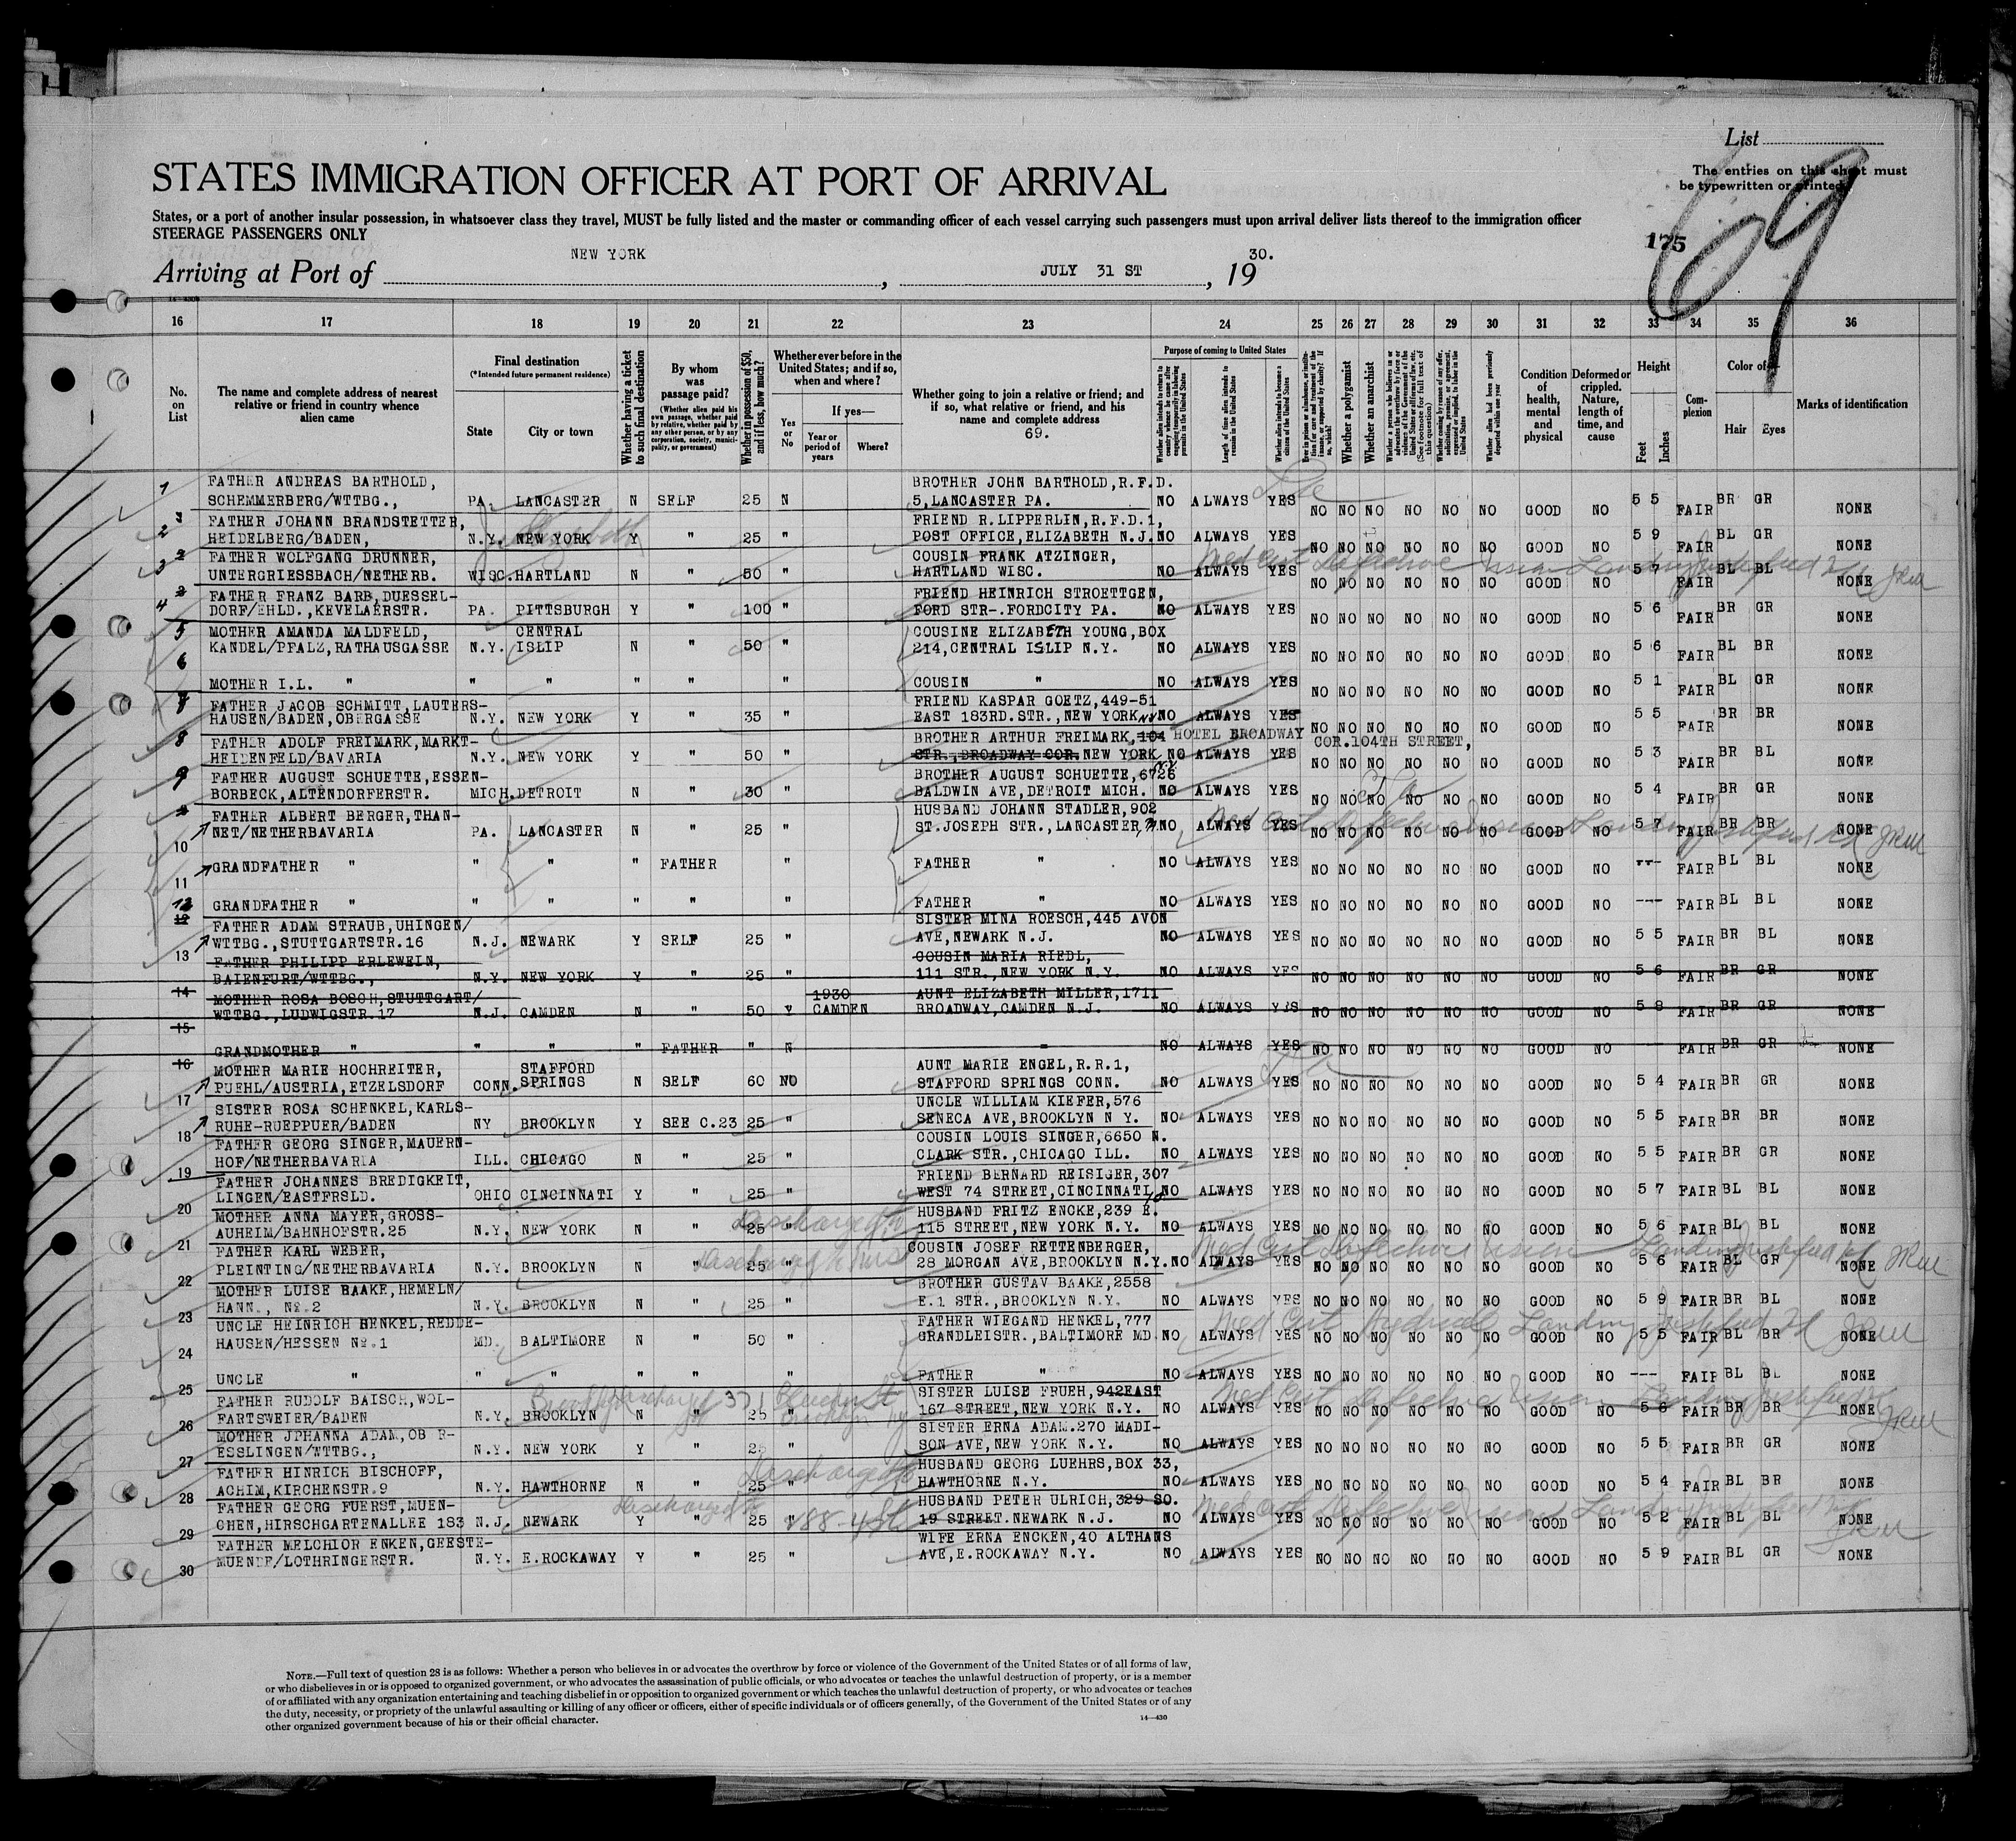 List
The entries on this sheet must
be typewritten or printed
69
175
STATES IMMIGRATION OFFICER AT PORT OF ARRIVAL
States, or a port of another insular possession, in whatsoever class they travel, MUST be fully listed and the master or commanding officer of each vessel carrying such passengers must upon arrival deliver lists thereof to the immigration officer
STEERAGE PASSENGERS ONLY
Arriving at Port of NEW YORK, JULY 31 ST, 19 30.
16 17 18 19 20 21 22 23 24 25 26 27 28 29 30 31 32 33 34 35 36
No. on List
The name and complete address of nearest relative or friend in country whence alien came
Final destination
(*Intended future permanent residence)
State
City or town
Whether having a ticket to such final destination
By whom was passage paid?
(Whether alien paid his own passage, whether paid by relative, whether paid by any other person, or by any corporation, society, municipality, or government)
Whether in possession of $50, and if less, how much?
Whether ever before in the United States; and if so, when and where?
Yes or No
If yes—
Year or period of years
Where?
Whether going to join a relative or friend; and if so, what relative or friend, and his name and complete address
69.
Purpose of coming to United States
Length of time alien intends to remain in the United States
Whether alien intends to become a citizen of the United States
Whether a polygamist
Whether an anarchist
Condition of health, mental and physical
Deformed or crippled. Nature, length of time, and cause
Height
Feet
Inches
Complexion
Color of—
Hair
Eyes
Marks of identification
1 FATHER ANDREAS BARTHOLD, BROTHER JOHN BARTHOLD, R.F.D.
SCHEMMERBERG/WTTBG., PA. LANCASTER N SELF 25 N 5, LANCASTER PA. NO ALWAYS YES NO NO NO NO NO NO GOOD NO 5 5 FAIR BR GR NONE
2 FATHER JOHANN BRANDSTETTER, FRIEND R. LIPPERLIN, R.F.D.1,
HEIDELBERG/BADEN, N.Y. NEW YORK Y " 25 " POST OFFICE, ELIZABETH N.J. NO ALWAYS YES NO NO NO NO NO NO GOOD NO 5 9 FAIR BL GR NONE
3 FATHER WOLFGANG DRUNNER, COUSIN FRANK ATZINGER,
UNTERGRIESSBACH/NETHERB. WISC. HARTLAND N " 50 " HARTLAND WISC. NO ALWAYS YES NO NO NO NO NO NO GOOD NO 5 7 FAIR BL BL NONE
4 FATHER FRANZ BARB, DUESSEL- FRIEND HEINRICH STROETTGEN,
DORF/EHLD., KEVELAERSTR. PA. PITTSBURGH Y " 100 " FORD STR-. FORDCITY PA. NO ALWAYS YES NO NO NO NO NO NO GOOD NO 5 6 FAIR BR GR NONE
5 MOTHER AMANDA MALDFELD, CENTRAL COUSINE ELIZABETH YOUNG, BOX
KANDEL/PFALZ, RATHAUSGASSE N.Y. ISLIP N " 50 " 214, CENTRAL ISLIP N.Y. NO ALWAYS YES NO NO NO NO NO NO GOOD NO 5 6 FAIR BL BR NONE
6 MOTHER I.L. " " " " " " COUSIN " NO ALWAYS YES NO NO NO NO NO NO GOOD NO 5 1 FAIR BL GR NONE
7 FATHER JACOB SCHMITT, LAUTERS- FRIEND KASPAR GOETZ, 449-51
HAUSEN/BADEN, OBERGASSE N.Y. NEW YORK Y " 35 " EAST 183RD. STR., NEW YORK NY NO ALWAYS YES NO NO NO NO NO NO GOOD NO 5 5 FAIR BR BR NONE
8 FATHER ADOLF FREIMARK, MARKT- BROTHER ARTHUR FREIMARK, 104 HOTEL BROADWAY COR. 104TH STREET,
HEIDENFELD/BAVARIA N.Y. NEW YORK Y " 50 " STR., BROADWAY COR. NEW YORK N.Y. NO ALWAYS YES NO NO NO NO NO NO GOOD NO 5 3 FAIR BR BL NONE
9 FATHER AUGUST SCHUETTE, ESSEN- BROTHER AUGUST SCHUETTE, 6726
BORBECK, ALTENDORFERSTR. MICH. DETROIT N " 30 " BALDWIN AVE, DETROIT MICH. NO ALWAYS YES NO NO NO NO NO NO GOOD NO 5 4 FAIR BR GR NONE
FATHER ALBERT BERGER, THAN- HUSBAND JOHANN STADLER, 902
10 NET/NETHERBAVARIA PA. LANCASTER N " 25 " ST. JOSEPH STR., LANCASTER NO ALWAYS YES NO NO NO NO NO NO GOOD NO 5 7 FAIR BR BR NONE
11 GRANDFATHER " " " " FATHER " FATHER " NO ALWAYS YES NO NO NO NO NO NO GOOD NO --- FAIR BL BL NONE
12 GRANDFATHER " " " " " " FATHER " NO ALWAYS YES NO NO NO NO NO NO GOOD NO --- FAIR BL BL NONE
FATHER ADAM STRAUB, UHINGEN/ SISTER MINA ROESCH, 445 AVON
13 WTTBG., STUTTGARTSTR. 16 N.J. NEWARK Y SELF 25 " AVE, NEWARK N.J. NO ALWAYS YES NO NO NO NO NO NO GOOD NO 5 5 FAIR BR BL NONE
FATHER PHILIPP ERLEWEIN, COUSIN MARIA RIEDL,
14 BAIENFURT/WTTBG., N.Y. NEW YORK Y " 25 " 111 STR., NEW YORK N.Y. NO ALWAYS YES NO NO NO NO NO NO GOOD NO 5 6 FAIR BR GR NONE
MOTHER ROSA BOSCH, STUTTGART/ 1930 AUNT ELIZABETH MILLER, 1711
15 WTTBG., LUDWIGSTR. 17 N.J. CAMDEN N " 50 Y CAMDEN BROADWAY, CAMDEN N.J. NO ALWAYS YES NO NO NO NO NO NO GOOD NO 5 8 FAIR BR GR NONE
16 GRANDMOTHER " " " " FATHER " N - NO ALWAYS YES NO NO NO NO NO NO GOOD NO FAIR BR GR NONE
MOTHER MARIE HOCHREITER, STAFFORD AUNT MARIE ENGEL, R.R.1,
17 PUEHL/AUSTRIA, ETZELSDORF CONN. SPRINGS N SELF 60 NO STAFFORD SPRINGS CONN. NO ALWAYS YES NO NO NO NO NO NO GOOD NO 5 4 FAIR BR GR NONE
SISTER ROSA SCHENKEL, KARLS- UNCLE WILLIAM KIEFER, 576
18 RUHE-RUEPPUER/BADEN NY BROOKLYN Y SEE C.23 25 " SENECA AVE, BROOKLYN N Y. NO ALWAYS YES NO NO NO NO NO NO GOOD NO 5 5 FAIR BR BR NONE
FATHER GEORG SINGER, MAUERN- COUSIN LOUIS SINGER, 6650 N.
19 HOF/NETHERBAVARIA ILL. CHICAGO N " 25 " CLARK STR., CHICAGO ILL. NO ALWAYS YES NO NO NO NO NO NO GOOD NO 5 5 FAIR BR GR NONE
FATHER JOHANNES BREDIGKEIT, FRIEND BERNARD REISIGER, 307
20 LINGEN/EASTFRSLD. OHIO CINCINNATI Y " 25 " WEST 74 STREET, CINCINNATI NO ALWAYS YES NO NO NO NO NO NO GOOD NO 5 7 FAIR BL BL NONE
MOTHER ANNA MAYER, GROSS- HUSBAND FRITZ ENCKE, 239 E.
21 AUHEIM/BAHNHOFSTR. 25 N.Y. NEW YORK N " 25 " 115 STREET, NEW YORK N.Y. NO ALWAYS YES NO NO NO NO NO NO GOOD NO 5 6 FAIR BL BL NONE
FATHER KARL WEBER, COUSIN JOSEF RETTENBERGER,
22 PLEINTING/NETHERBAVARIA N.Y. BROOKLYN N " 25 " 28 MORGAN AVE, BROOKLYN N.Y. NO ALWAYS YES NO NO NO NO NO NO GOOD NO 5 6 FAIR BL GR NONE
MOTHER LUISE BAAKE, HEMELN/ BROTHER GUSTAV BAAKE, 2558
23 HANN., No.2 N.Y. BROOKLYN N " 25 " E.1 STR., BROOKLYN N.Y. NO ALWAYS YES NO NO NO NO NO NO GOOD NO 5 9 FAIR BR BL NONE
UNCLE HEINRICH HENKEL, REDDE- FATHER WIEGAND HENKEL, 777
24 HAUSEN/HESSEN No.1 MD. BALTIMORE N " 50 " GRANDLEISTR., BALTIMORE MD. NO ALWAYS YES NO NO NO NO NO NO GOOD NO 5 5 FAIR BL BR NONE
25 UNCLE " " " " " " " FATHER " NO ALWAYS YES NO NO NO NO NO NO GOOD NO --- FAIR BL BL NONE
FATHER RUDOLF BAISCH, WOL- SISTER LUISE FRUEH, 942EAST
26 FARTSWEIER/BADEN N.Y. BROOKLYN N " 25 " 167 STREET, NEW YORK N.Y. NO ALWAYS YES NO NO NO NO NO NO GOOD NO 5 6 FAIR BR BR NONE
MOTHER JPHANNA ADAM, OB R- SISTER ERNA ADAM. 270 MADI-
27 ESSLINGEN/WTTBG., N.Y. NEW YORK Y " 25 " SON AVE, NEW YORK N.Y. NO ALWAYS YES NO NO NO NO NO NO GOOD NO 5 5 FAIR BR GR NONE
FATHER HINRICH BISCHOFF, HUSBAND GEORG LUEHRS, BOX 33,
28 ACHIM, KIRCHENSTR. 9 N.Y. HAWTHORNE N " 25 " HAWTHORNE N.Y. NO ALWAYS YES NO NO NO NO NO NO GOOD NO 5 4 FAIR BL BR NONE
FATHER GEORG FUERST, MUEN- HUSBAND PETER ULRICH, 329 SO.
29 CHEN, HIRSCHGARTENALLEE 183 N.J. NEWARK Y " 25 " 19 STREET. NEWARK N.J. NO ALWAYS YES NO NO NO NO NO NO GOOD NO 5 2 FAIR BL BL NONE
FATHER MELCHIOR ENKEN, GEESTE- WIFE ERNA ENCKEN, 40 ALTHANS
30 MUENDE/LOTHRINGERSTR. N.Y. E.ROCKAWAY Y " 25 " AVE, E.ROCKAWAY N.Y. NO ALWAYS YES NO NO NO NO NO NO GOOD NO 5 9 FAIR BL GR NONE
NOTE.—Full text of question 28 is as follows: Whether a person who believes in or advocates the overthrow by force or violence of the Government of the United States or of all forms of law,
or who disbelieves in or is opposed to organized government, or who advocates the assassination of public officials, or who advocates or teaches the unlawful destruction of property, or is a member
of or affiliated with any organization entertaining and teaching disbelief in or opposition to organized government or which teaches the unlawful destruction of property, or who advocates or teaches
the duty, necessity, or propriety of the unlawful assaulting or killing of any officer or officers, either of specific individuals or of officers generally, of the Government of the United States or of any
other organized government because of his or their official character.
14—430